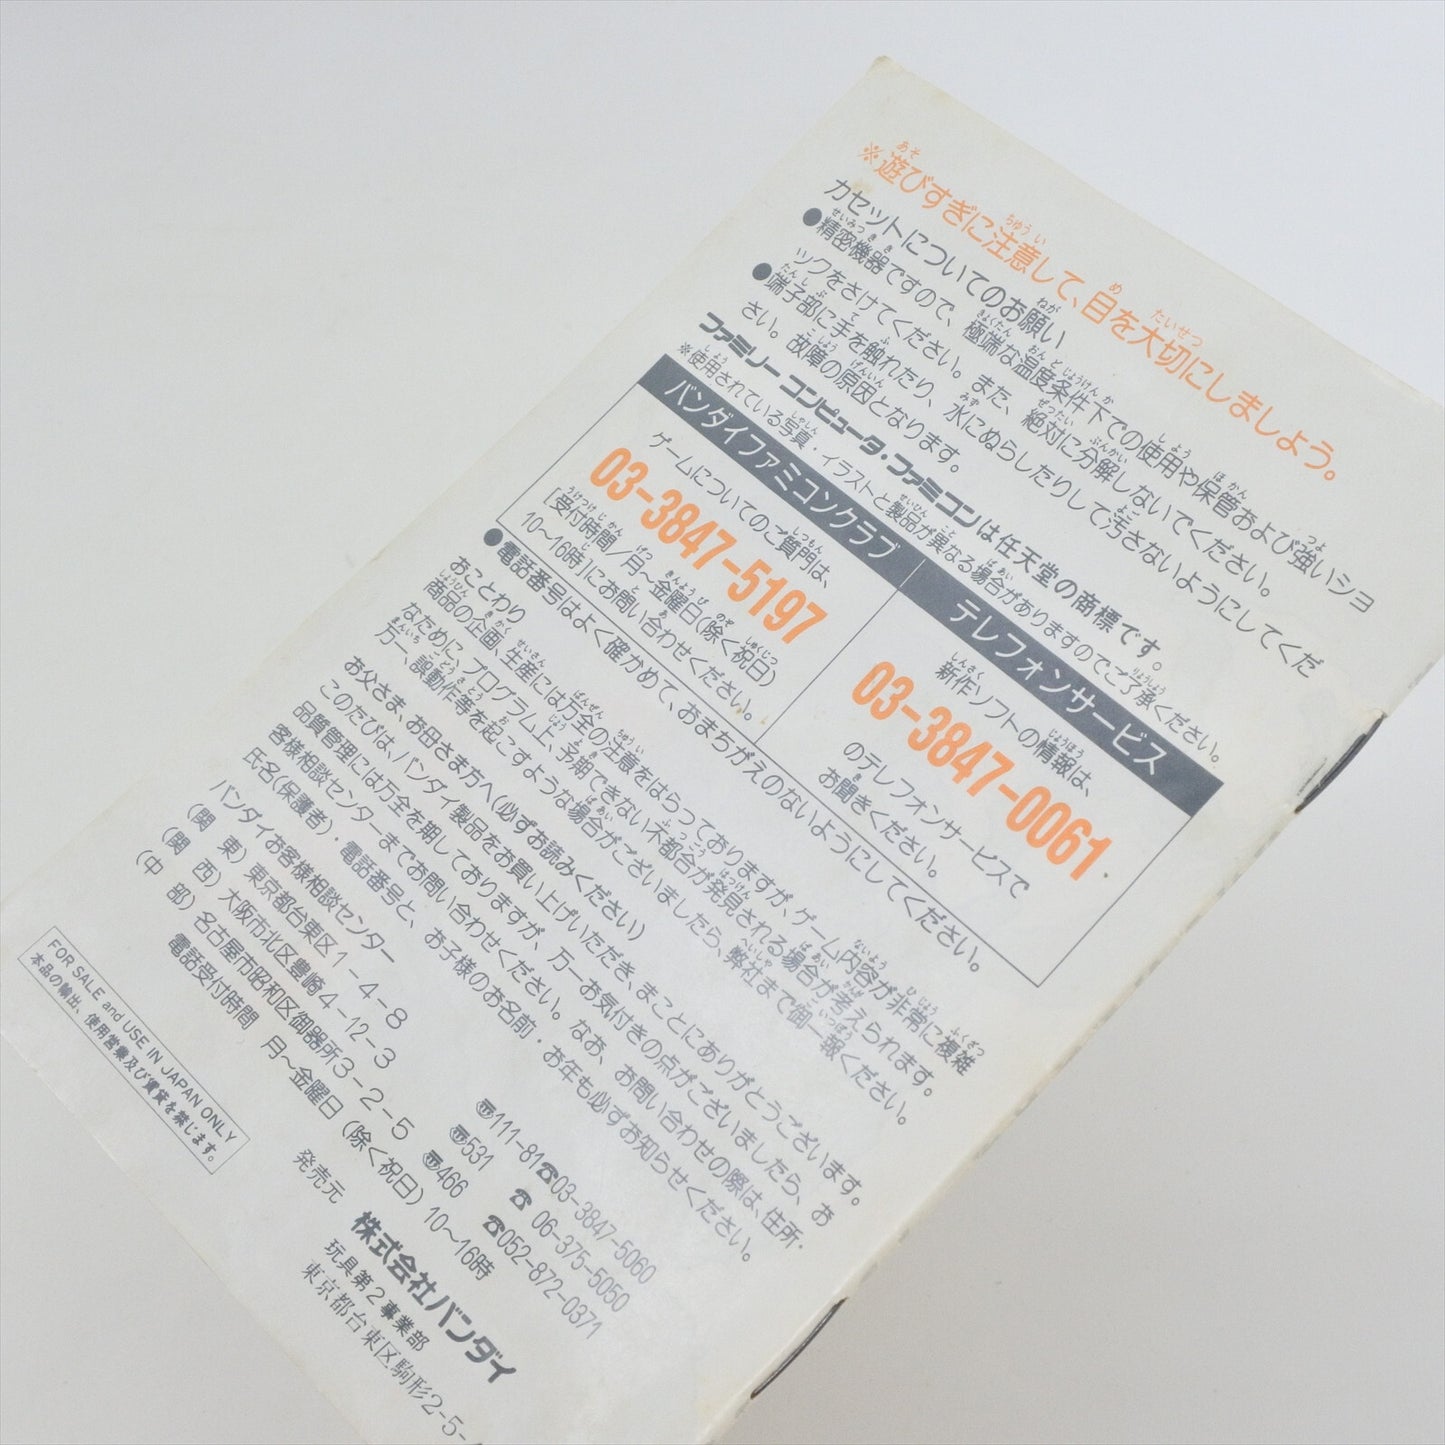 ※遊びすぎに注意して、目を大切にしましょう。
カセットについてのお願い
●精密機器ですので、極端な温度条件下での使用や保管および強いショ
ックをさけてください。また、絶対に分解しないでください。
●端子部に手を触れたり、水にぬらしたりして汚さないようにしてくだ
さい。故障の原因となります。
ファミリーコンピュータ・ファミコンは任天堂の商標です。
※使用されている写真・イラストと製品が異なる場合がありますのでご了承ください。
バンダイファミコンクラブ
ゲームについてのご質問は、
03-3847-5197
[受付時間/月〜金曜日(除く祝日)
10〜16時]にお問い合わせください。
テレフォンサービス
新作ソフトの情報は、
03-3847-0061
のテレフォンサービスで
お聞きください。
●電話番号はよく確かめて、おまちがえのないようにしてください。
おことわり
商品の企画、生産には万全の注意をはらっておりますが、ゲーム内容が非常に複雑
なために、プログラム上、予期できない不都合が発見される場合が考えられます。
万一、誤動作等を起こすような場合がございましたら、弊社まで御一報ください。
お父さま、お母さま方へ(必ずお読みください)
このたびは、バンダイ製品をお買い上げいただき、まことにありがとうございます。
品質管理には万全を期しておりますが、万一お気付きの点がございましたら、お
客様相談センターまでお問い合わせください。なお、お問い合わせの際は、住所・
氏名(保護者)・電話番号と、お子様のお名前・お年も必ずお知らせください。
バンダイお客様相談センター
(関 東) 東京都台東区1-4-8 〒111-81☎03-3847-5060
(関 西) 大阪市北区豊崎4-12-3 〒531 ☎06-375-5050
(中 部) 名古屋市昭和区御器所3-2-5 〒466 ☎052-872-0371
電話受付時間 月〜金曜日(除く祝日)10〜16時
FOR SALE and USE IN JAPAN ONLY
本品の輸出、使用営業及び賃貸を禁じます。
発売元 株式会社バンダイ
玩具第2事業部
東京都台東区駒形2-5-